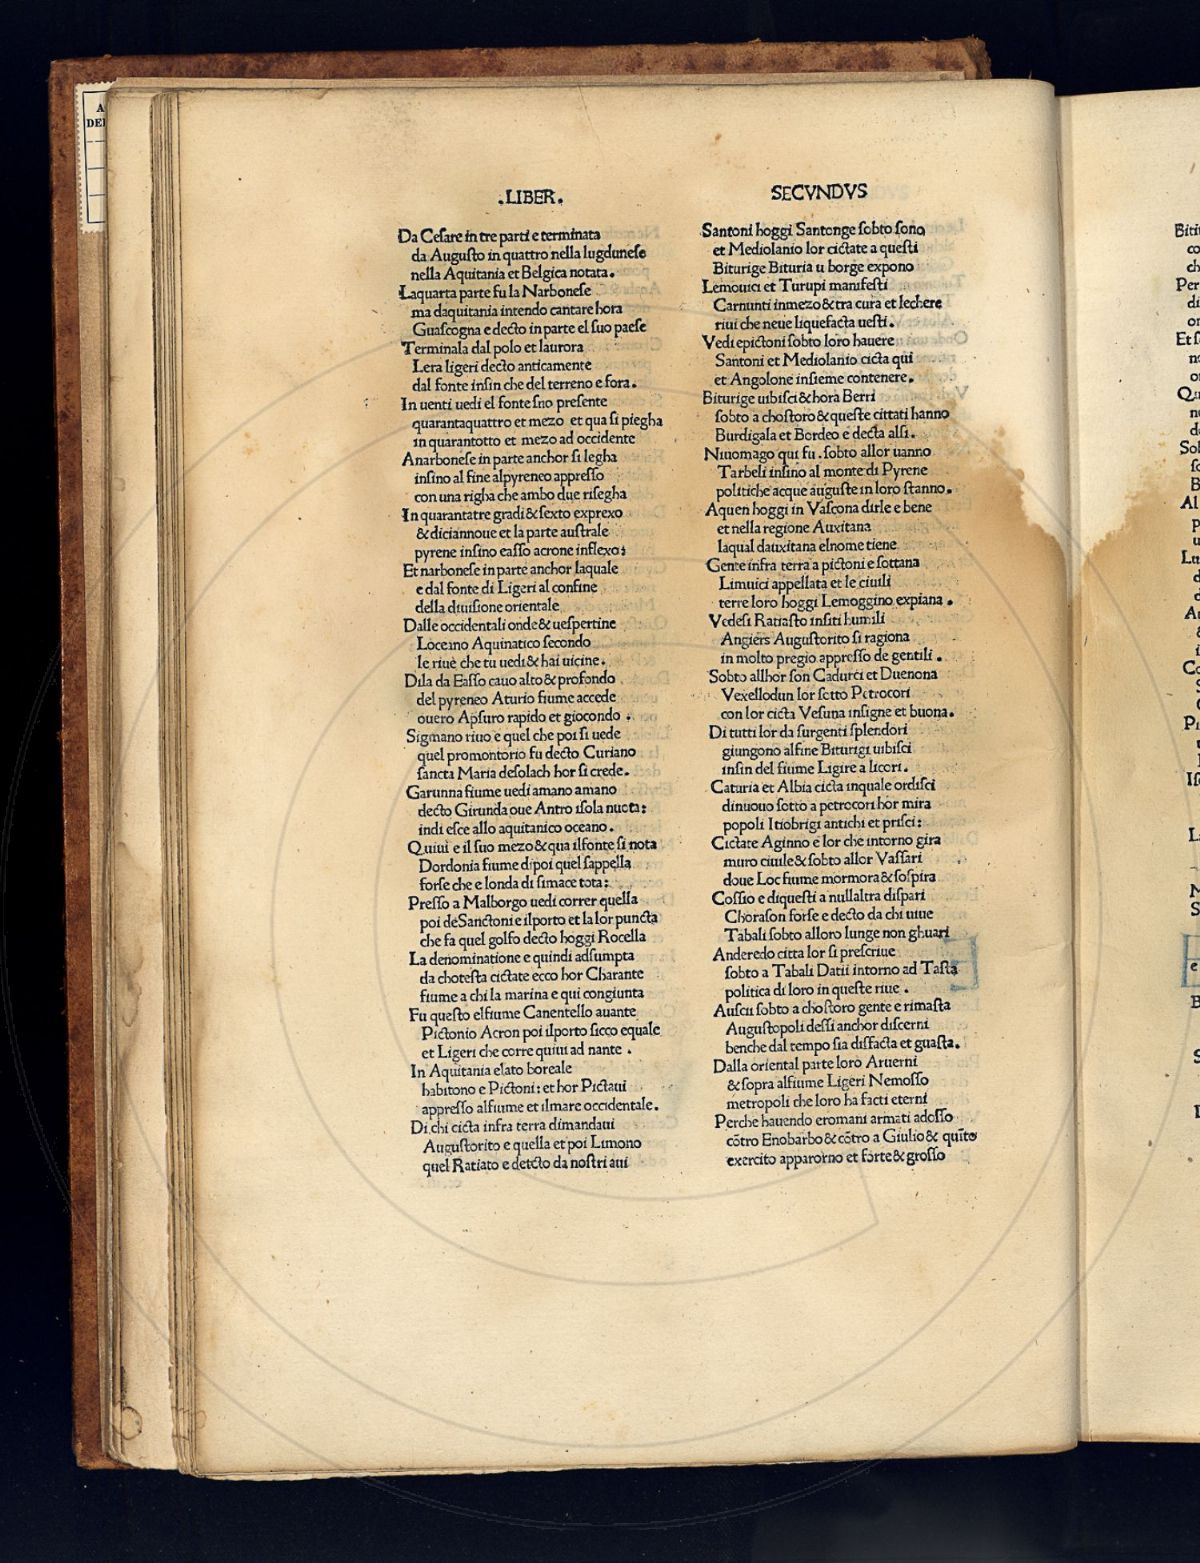 .LIBER.
Da Ceſare in tre parti e terminata
da Auguſto in quattro nella lugduneſe
nella Aquitania et Belgica notata.
Laquarta parte fu la Narboneſe
ma daquitania intendo cantare hora
Guaſcogna e decto in parte el ſuo paeſe
Terminala dal polo et laurora
Lera ligeri decto anticamente
dal fonte inſin che del terreno e fora.
In uenti uedi el fonte ſno preſente
quarantaquattro et mezo et qua ſi piegha
in quarantotto et mezo ad occidente
Anarboneſe in parte anchor ſi legha
inſino al fine alpyreneo appreſſo
con una righa che ambo due riſegha
In quarantatre gradi & ſexto exprexo
& diciannoue et la parte auſtrale
pyrene inſino eaſſo acrone inflexo:
Et narboneſe in parte anchor laquale
e dal fonte di Ligeri al confine
della diuiſione orientale
Dalle occidentali onde & ueſpertine
Loceano Aquinatico ſecondo
le riue che tu uedi & hai uicine.
Dila da Eaſſo cauo alto & profondo
del pyreneo Aturio fiume accede
ouero Apſuro rapido et giocondo.
Sigmano riuo e quel che poi ſi uede
quel promontorio fu decto Curiano
ſancta Maria deſolach hor ſi crede.
Garunna fiume uedi amano amano
decto Girunda oue Antro iſola nuota:
indi eſce allo aquitanico oceano.
Quiui e il ſuo mezo & qua ilfonte ſi nota
Dordonia fiume di poi quel ſappella
forſe che e londa di ſimace tota:
Preſſo a Malborgo uedi correr quella
poi de Sanctoni e ilporto et la lor puncta
che fa quel golfo decto hoggi Rocella
La denominatione e quindi adſumpta
da choteſta cictate ecco hor Charante
fiume a chi la marina e qui congiunta
Fu queſto elfiume Canentello auante
Pictonio Acron poi ilporto ſicco equale
et Ligeri che corre quiui ad nante.
In Aquitania elato boreale
habitono e Pictoni: et hor Pictaui
appreſſo alfiume et ilmare occidentale.
Di chi cicta infra terra dimandaui
Auguſtorito e quella et poi Limono
quel Ratiato e detcto da noſtri aui
SECVNDVS
Santoni hoggi Santonge ſobto ſono
et Mediolanio lor cictate a queſti
Biturige Bituria u borge expono
Lemouici et Turupi manifeſti
Carnunti inmezo & tra cura et lechere
riui che neue liquefacta ueſti.
Vedi epictoni ſobto loro hauere
Santoni et Mediolanio cicta qui
et Angolone inſieme contenere.
Biturige uibiſci & hora Berri
ſobto a choſtoro & queſte cittati hanno
Burdigala et Bordeo e decta alſi.
Niuomago qui fu . ſobto allor uanno
Tarbeli inſino al monte di Pyrene
politiche acque auguſte in loro ſtanno.
Aquen hoggi in Vaſcona dirle e bene
et nella regione Auxitana
laqual dauxitana elnome tiene
Gente infra terra a pictoni e ſottana
Limuici appellata et le ciuili
terre loro hoggi Lemoggino expiana.
Vedeſi Ratiaſto inſiti humili
Angiers Auguſtorito ſi ragiona
in molto pregio appreſſo de gentili.
Sobto allhor ſon Cadurci et Duenona
Vexellodun lor ſotto Petrocori
con lor cicta Veſuna inſigne et buona.
Di tutti lor da ſurgenti ſplendori
giungono alfine Biturigi uibiſci
inſin del fiume Ligire a licori.
Caturia et Albia cicta inquale ordiſci
dinuouo ſotto a petrocori hor mira
popoli Itiobrigi antichi et priſci:
Cictate Aginno e lor che intorno gira
muro ciuile & ſobto allor Vaſſari
doue Loc fiume mormora & ſoſpira
Coſſio e diqueſti a nullaltra diſpari
Choraſon forſe e decto da chi uiue
Tabali ſobto alloro lunge non ghuari
Anderedo citta lor ſi preſcriue
ſobto a Tabali Datii intorno ad Taſta
politica di loro in queſte riue.
Auſcii ſobto a choſtoro gente e rimaſta
Auguſtopoli deſſi anchor diſcerni
benche dal tempo ſia disfacta et guaſta.
Dalla oriental parte loro Aruerni
& ſopra alfiume Ligeri Nemoſſo
metropoli che loro ha facti eterni
Perche hauendo eromani armati adoſſo
cōtro Enobarbo & cōtro a Giulio & quīto
exercito apparorno et forte & groſſo